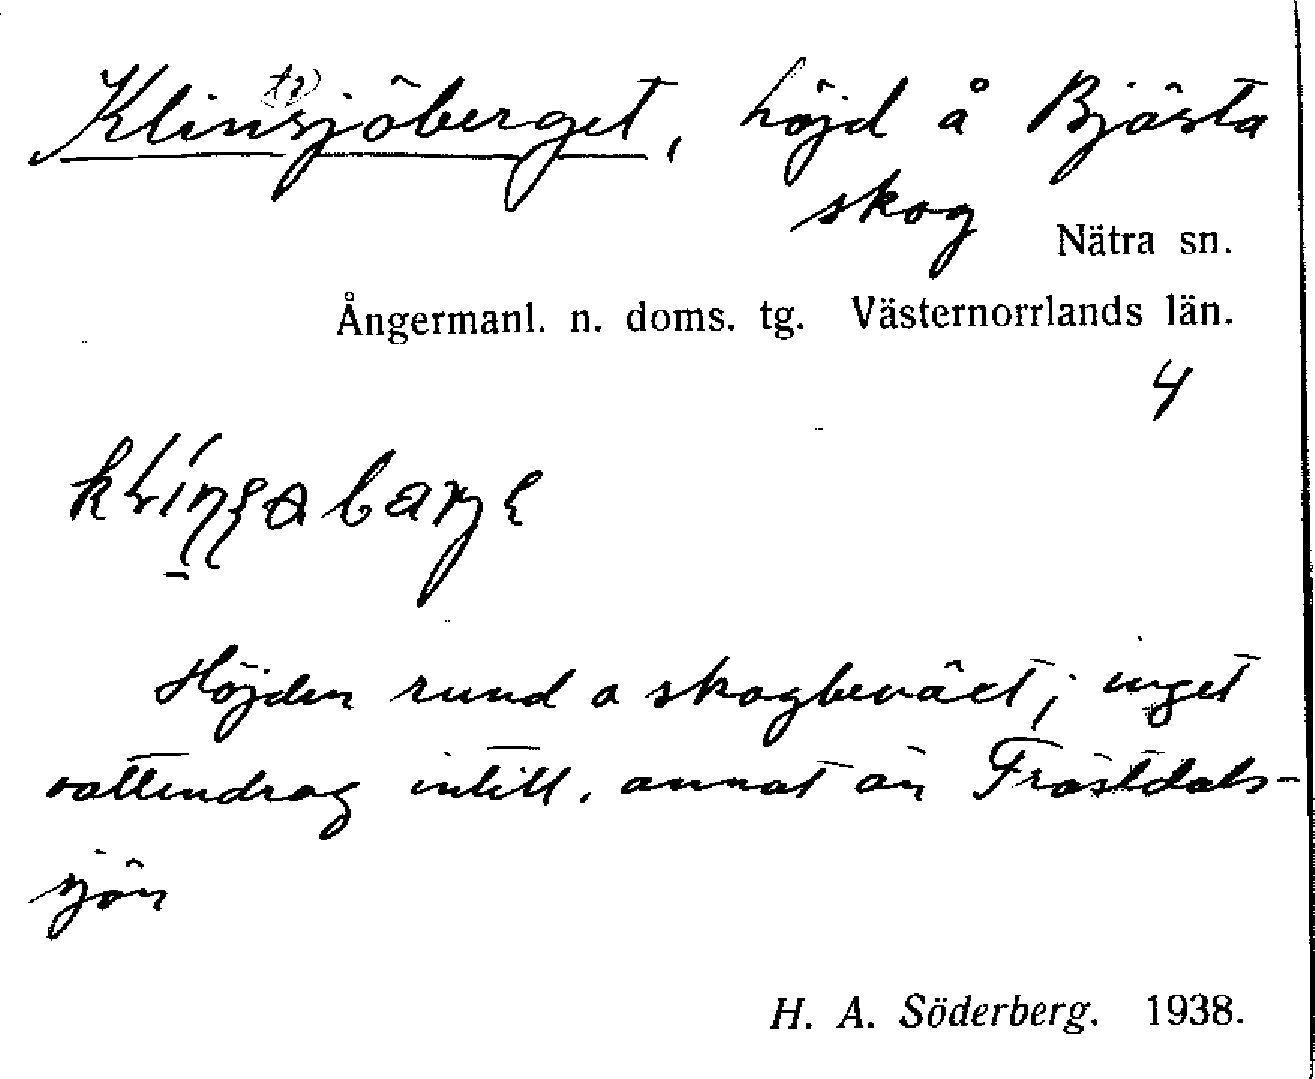 Klinsjöberget, höjd å Bjästa
skog
Nätra sn.
Ångermanl. n. doms. tg. Västernorrlands län.
4
Höjden rund o skogbeväxt; inget
vattendrag intill, annat än Frästdals-
sjön
H. A. Söderberg. 1938.